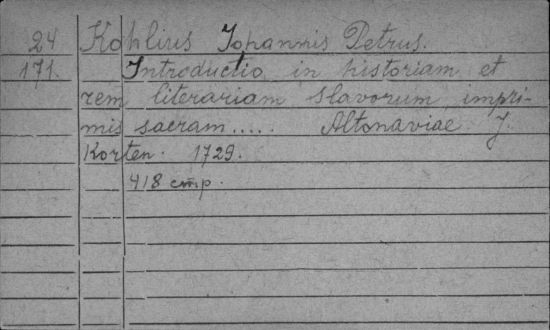 24 Kohlius Johannis Petrus.
171. Introductio in historiam et
rem literariam slavorum, impri-
mis sacram..... Altonaviae J.
Korten. 1729.
418 стр.